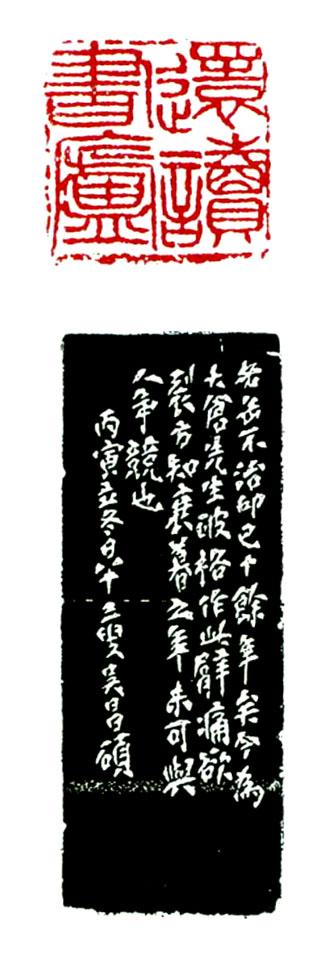 還讀
書廬
老缶不治印已十餘年矣今為
大倉先生破格作此臂痛欲
裂方知衰暮之年未可與
人爭競也
丙寅立冬日八十三叟吳昌碩